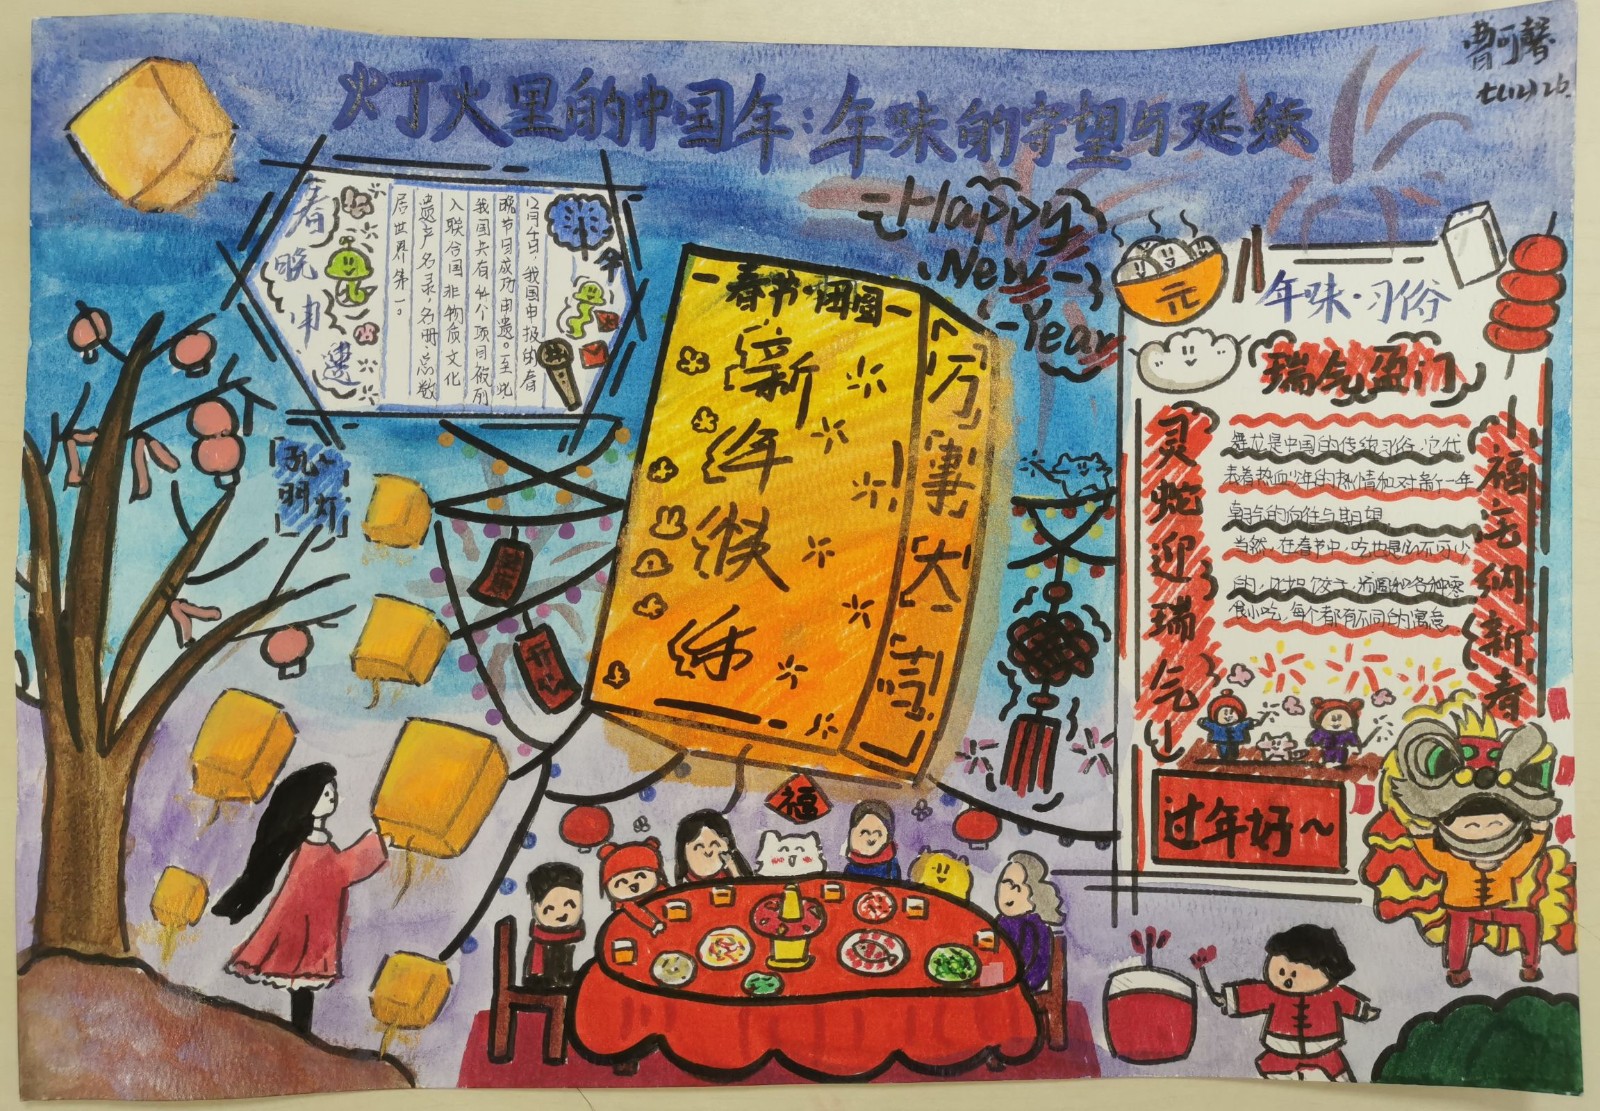 曹可馨
七(12) 26.
灯火里的中国年：年味的守望与延续
Happy
New
Year
春晚申遗
12月4日，我国申报的春
晚节目成功申遗。至此
我国共有44个项目被列
入联合国非物质文化
遗产名录，名册总数
居世界第一。
孔明灯
春节·团圆
新年猴乐
万事大吉
福
元
年味·习俗
瑞气盈门
灵蛇迎瑞气
福宅纳新春
舞龙是中国的传统习俗，它代
表着热血少年的热情和对新一年
朝气的向往与期望
当然，在春节中，吃也是必不可少
的，比如饺子，汤圆和各种零
食小吃，每个都有不同的寓意
过年好～